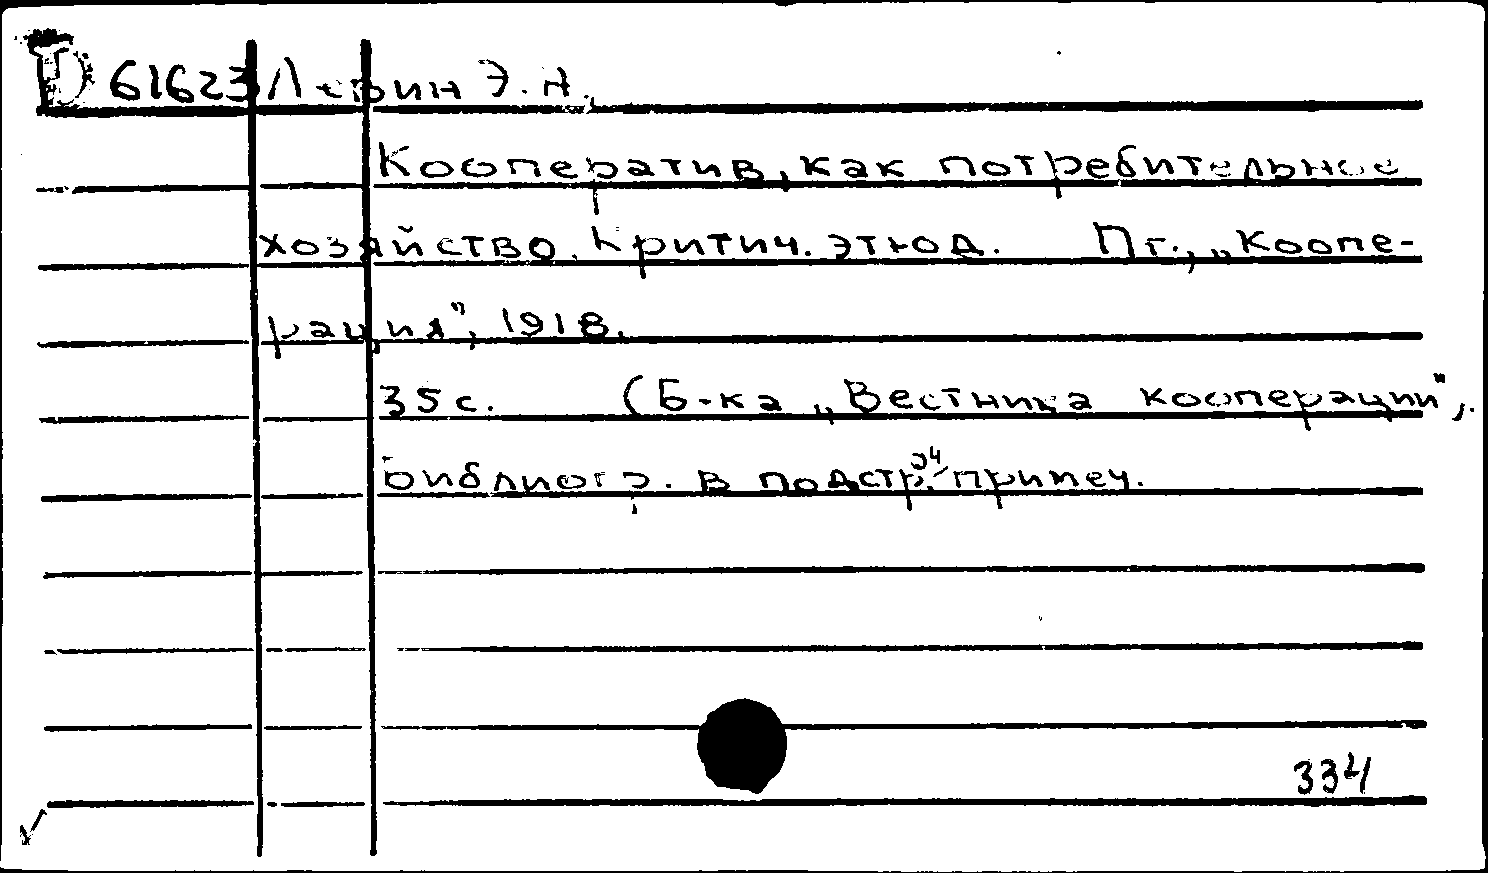 D 61623 Левин Э. Н.
Кооператив, как потребительное
хозяйство. Критич. этюд. Пг., „Коопе-
рация", 1918.
35 с. (Б-ка „Вестника кооперации",.
Библиогр. в подстр. примеч.
334